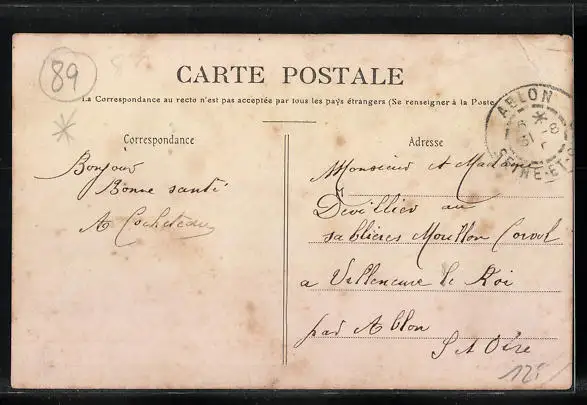 89
CARTE POSTALE
La Correspondance au recto n'est pas acceptée par tous les pays étrangers (Se renseigner à la Poste
ABLON
SEINE-ET-
Correspondance
Adresse
Bonjour
Bonne santé
A Cocheteau
Monsieur et Madame
Devillier au
sablières Morillon Corvol
a Villeneuve le Roi
par Ablon
S et Oise